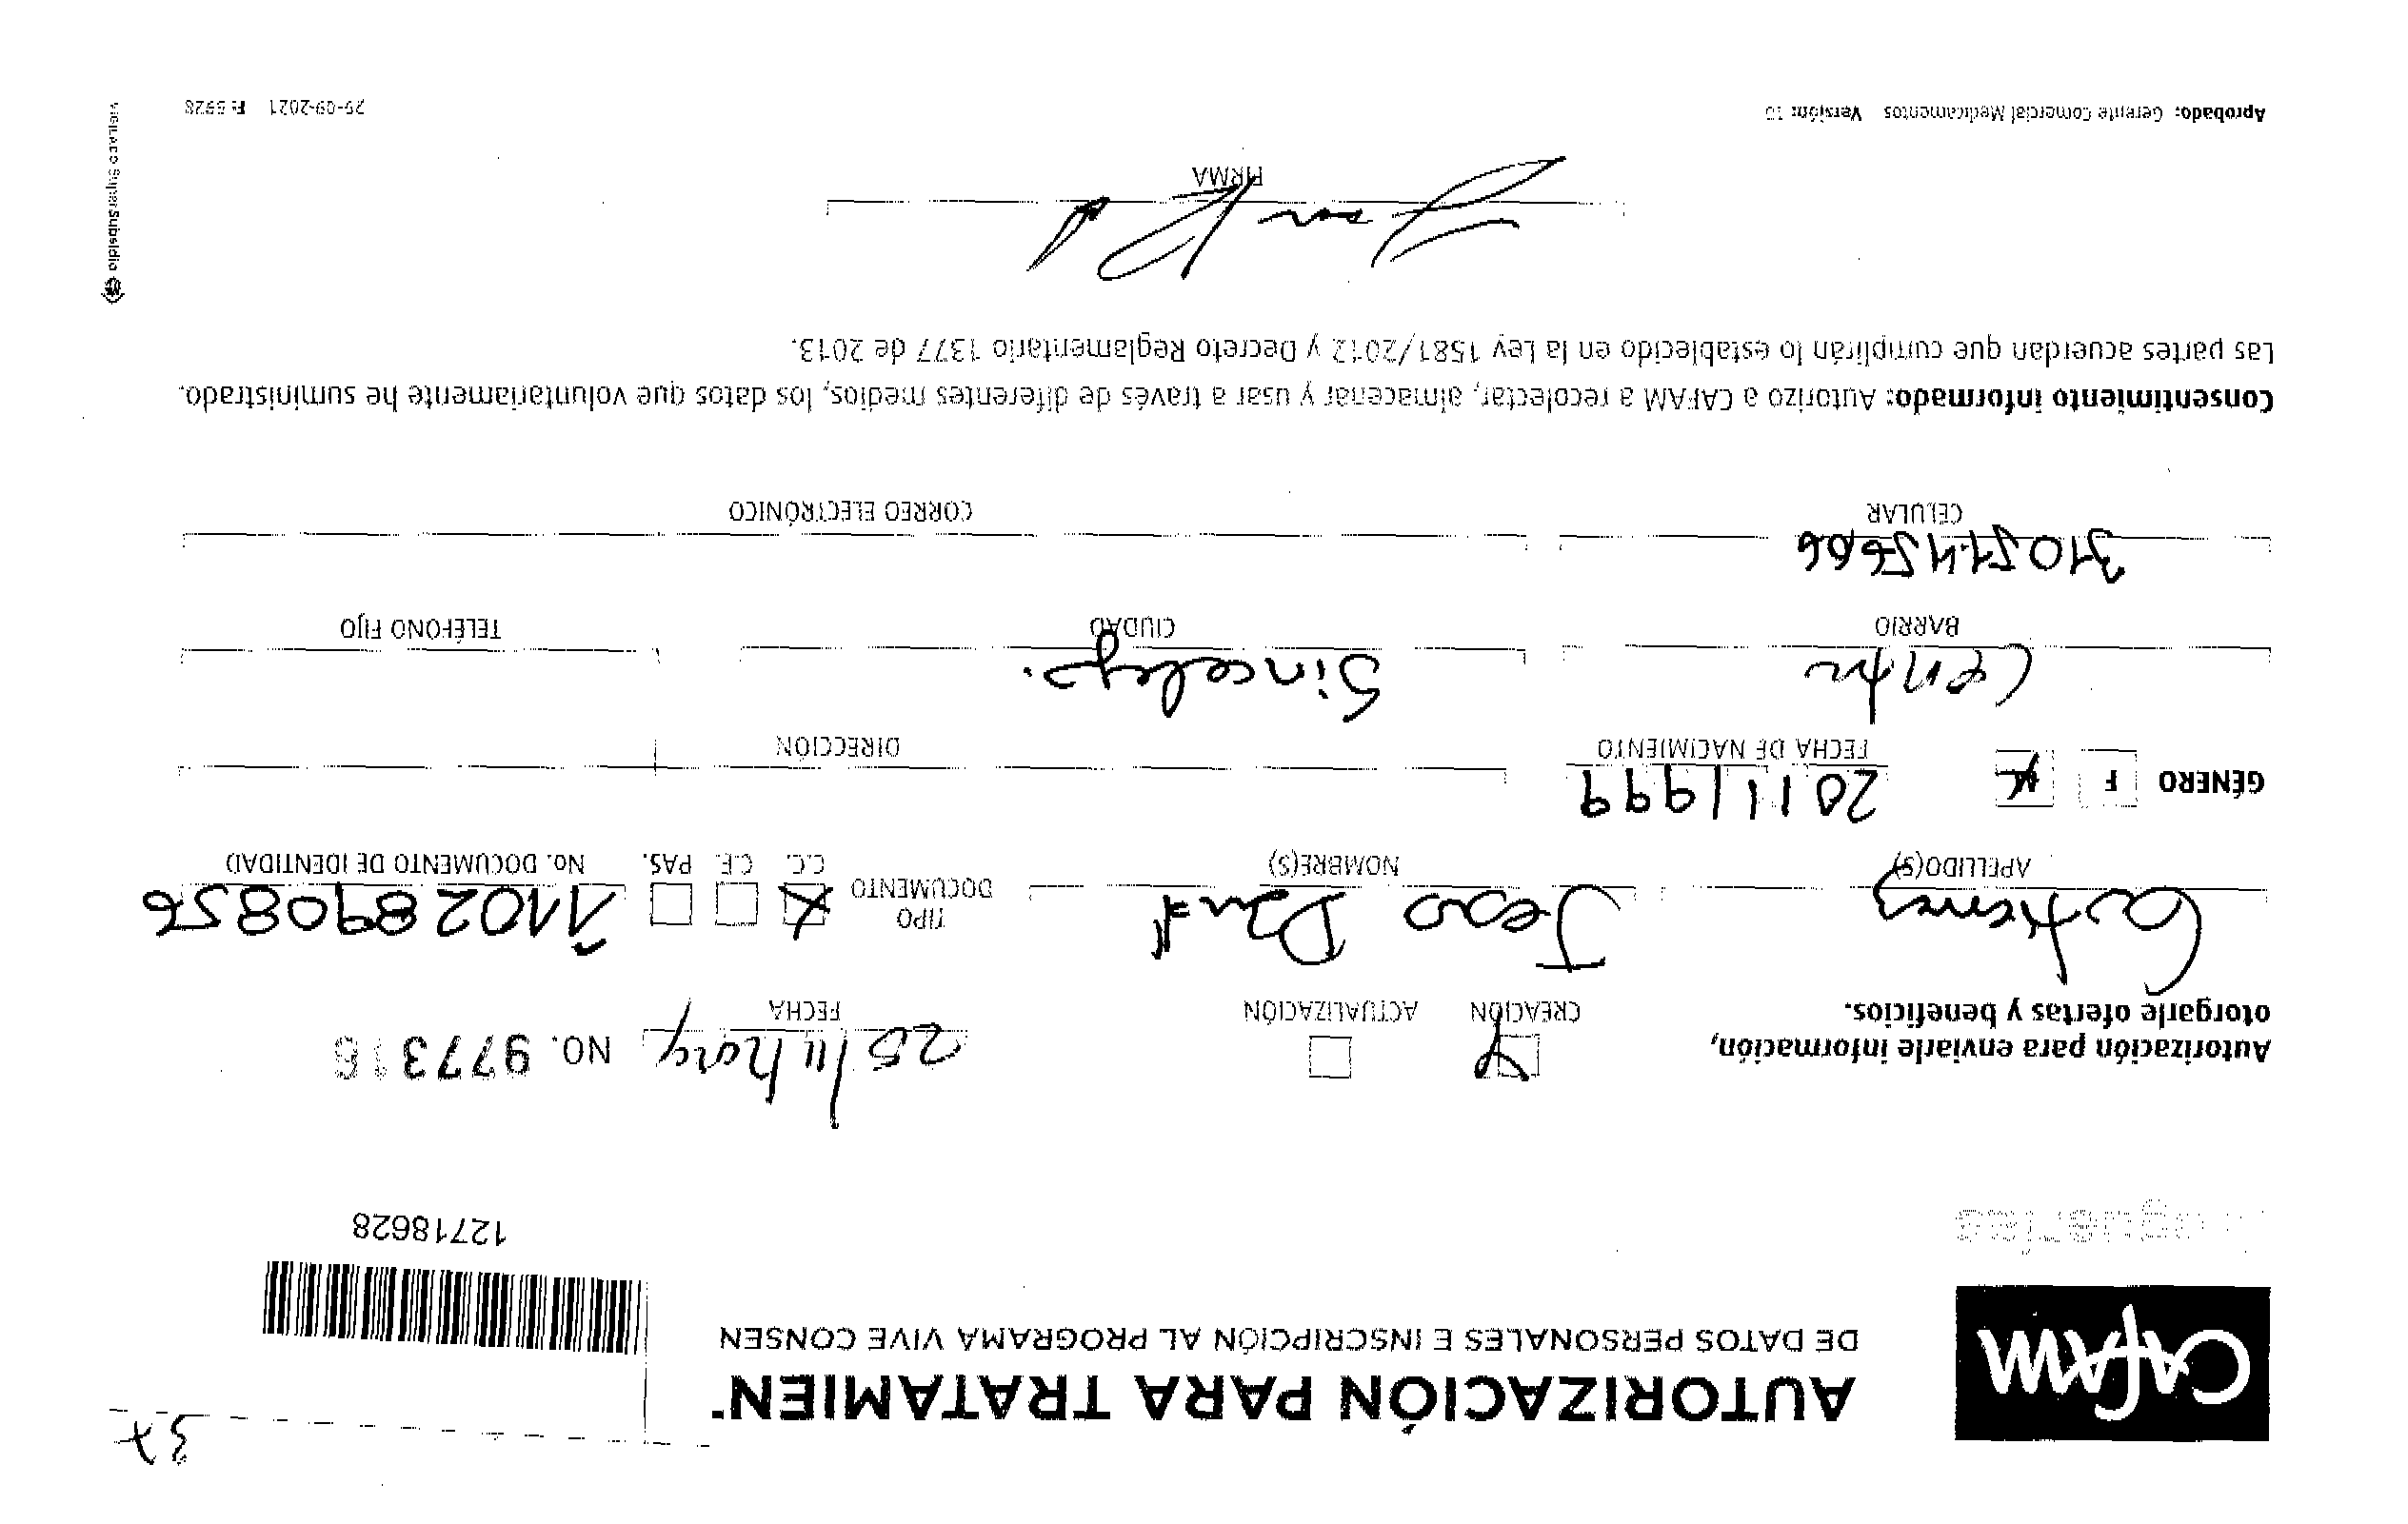 37
CAFAM
Droguerías
AUTORIZACIÓN PARA TRATAMIEN
DE DATOS PERSONALES E INSCRIPCIÓN AL PROGRAMA VIVE CONSEN
12718628
Autorización para enviarle información,
otorgarle ofertas y beneficios.
CREACIÓN ACTUALIZACIÓN
25/11/
FECHA
NO. 9773
Jeso David
1102890856
APELLIDO(S) NOMBRE(S) TIPO DOCUMENTO C.C. C.E. PAS. No. DOCUMENTO DE IDENTIDAD
GÉNERO F
20111999
FECHA DE NACIMIENTO DIRECCIÓN
Centro Sincelejo.
BARRIO CIUDAD TELÉFONO FIJO
3105145606
CELULAR CORREO ELECTRÓNICO
Consentimiento informado: Autorizo a CAFAM a recolectar, almacenar y usar a través de diferentes medios, los datos que voluntariamente he suministrado.
Las partes acuerdan que cumplirán lo establecido en la Ley 1581/2012 y Decreto Reglamentario 1377 de 2013.
FIRMA
Aprobado: Gerente Comercial Medicamentos Versión: 10 29-09-2021 F: 5928
VIGILADO SuperSubsidio